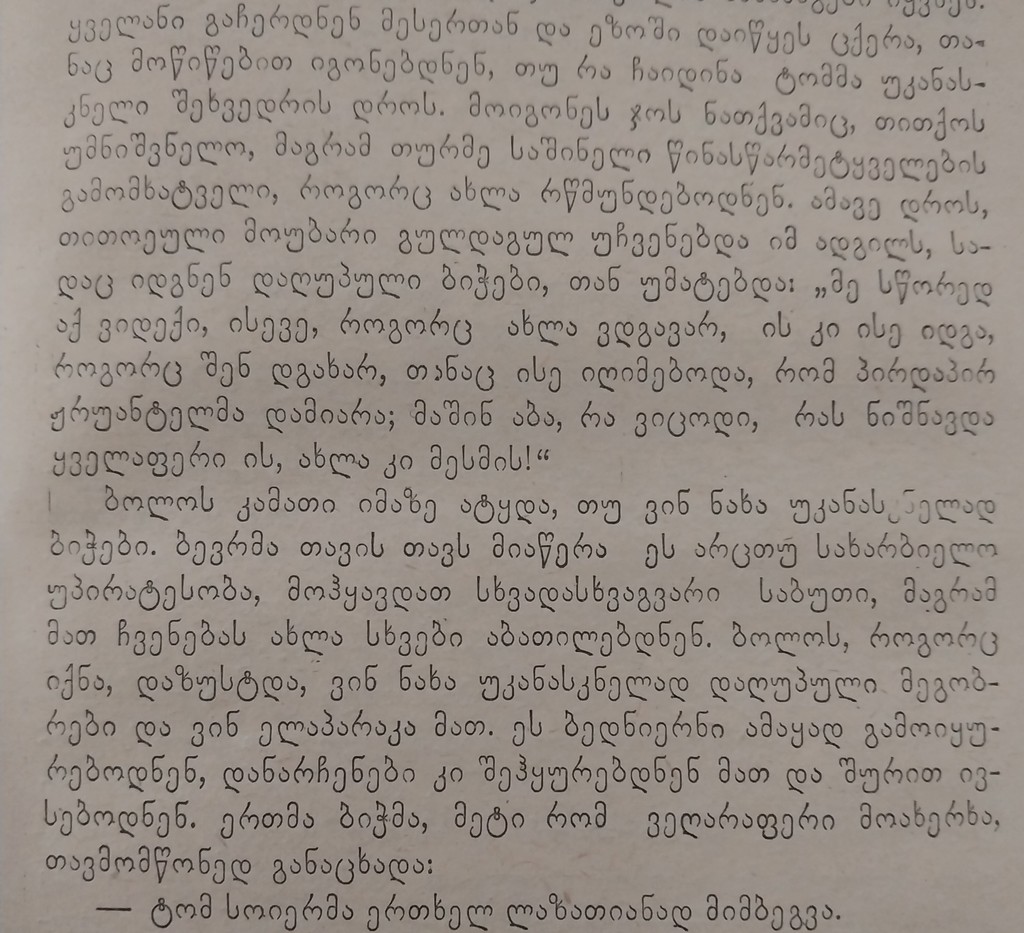 ყველანი გაჩერდნენ მესერთან და ეზოში დაიწყეს ცქერა, თა-
ნაც მოწიწებით იგონებდნენ, თუ რა ჩაიდინა ტომმა უკანას-
კნელი შეხვედრის დროს. მოიგონეს ჯოს ნათქვამიც, თითქოს
უმნიშვნელო, მაგრამ თურმე საშინელი წინასწარმეტყველების
გამომხატველი, როგორც ახლა რწმუნდებოდნენ. ამავე დროს,
თითოეული მოუბარი გულდაგულ უჩვენებდა იმ ადგილს, სა-
დაც იდგნენ დაღუპული ბიჭები, თან უმატებდა: „მე სწორედ
აქ ვიდექი, ისევე, როგორც ახლა ვდგავარ, ის კი ისე იდგა,
როგორც შენ დგახარ, თანაც ისე იღიმებოდა, რომ პირდაპირ
ჟრუანტელმა დამიარა; მაშინ აბა, რა ვიცოდი, რას ნიშნავდა
ყველაფერი ის, ახლა კი მესმის!“
ბოლოს კამათი იმაზე ატყდა, თუ ვინ ნახა უკანასკნელად
ბიჭები. ბევრმა თავის თავს მიაწერა ეს არცთუ სახარბიელო
უპირატესობა, მოჰყავდათ სხვადასხვაგვარი საბუთი, მაგრამ
მათ ჩვენებას ახლა სხვები აბათილებდნენ. ბოლოს, როგორც
იქნა, დაზუსტდა, ვინ ნახა უკანასკნელად დაღუპული მეგობ-
რები და ვინ ელაპარაკა მათ. ეს ბედნიერნი ამაყად გამოიყუ-
რებოდნენ, დანარჩენები კი შეჰყურებდნენ მათ და შურით ივ-
სებოდნენ. ერთმა ბიჭმა, მეტი რომ ვეღარაფერი მოახერხა,
თავმომწონედ განაცხადა:
— ტომ სოიერმა ერთხელ ლაზათიანად მიმბეგვა.